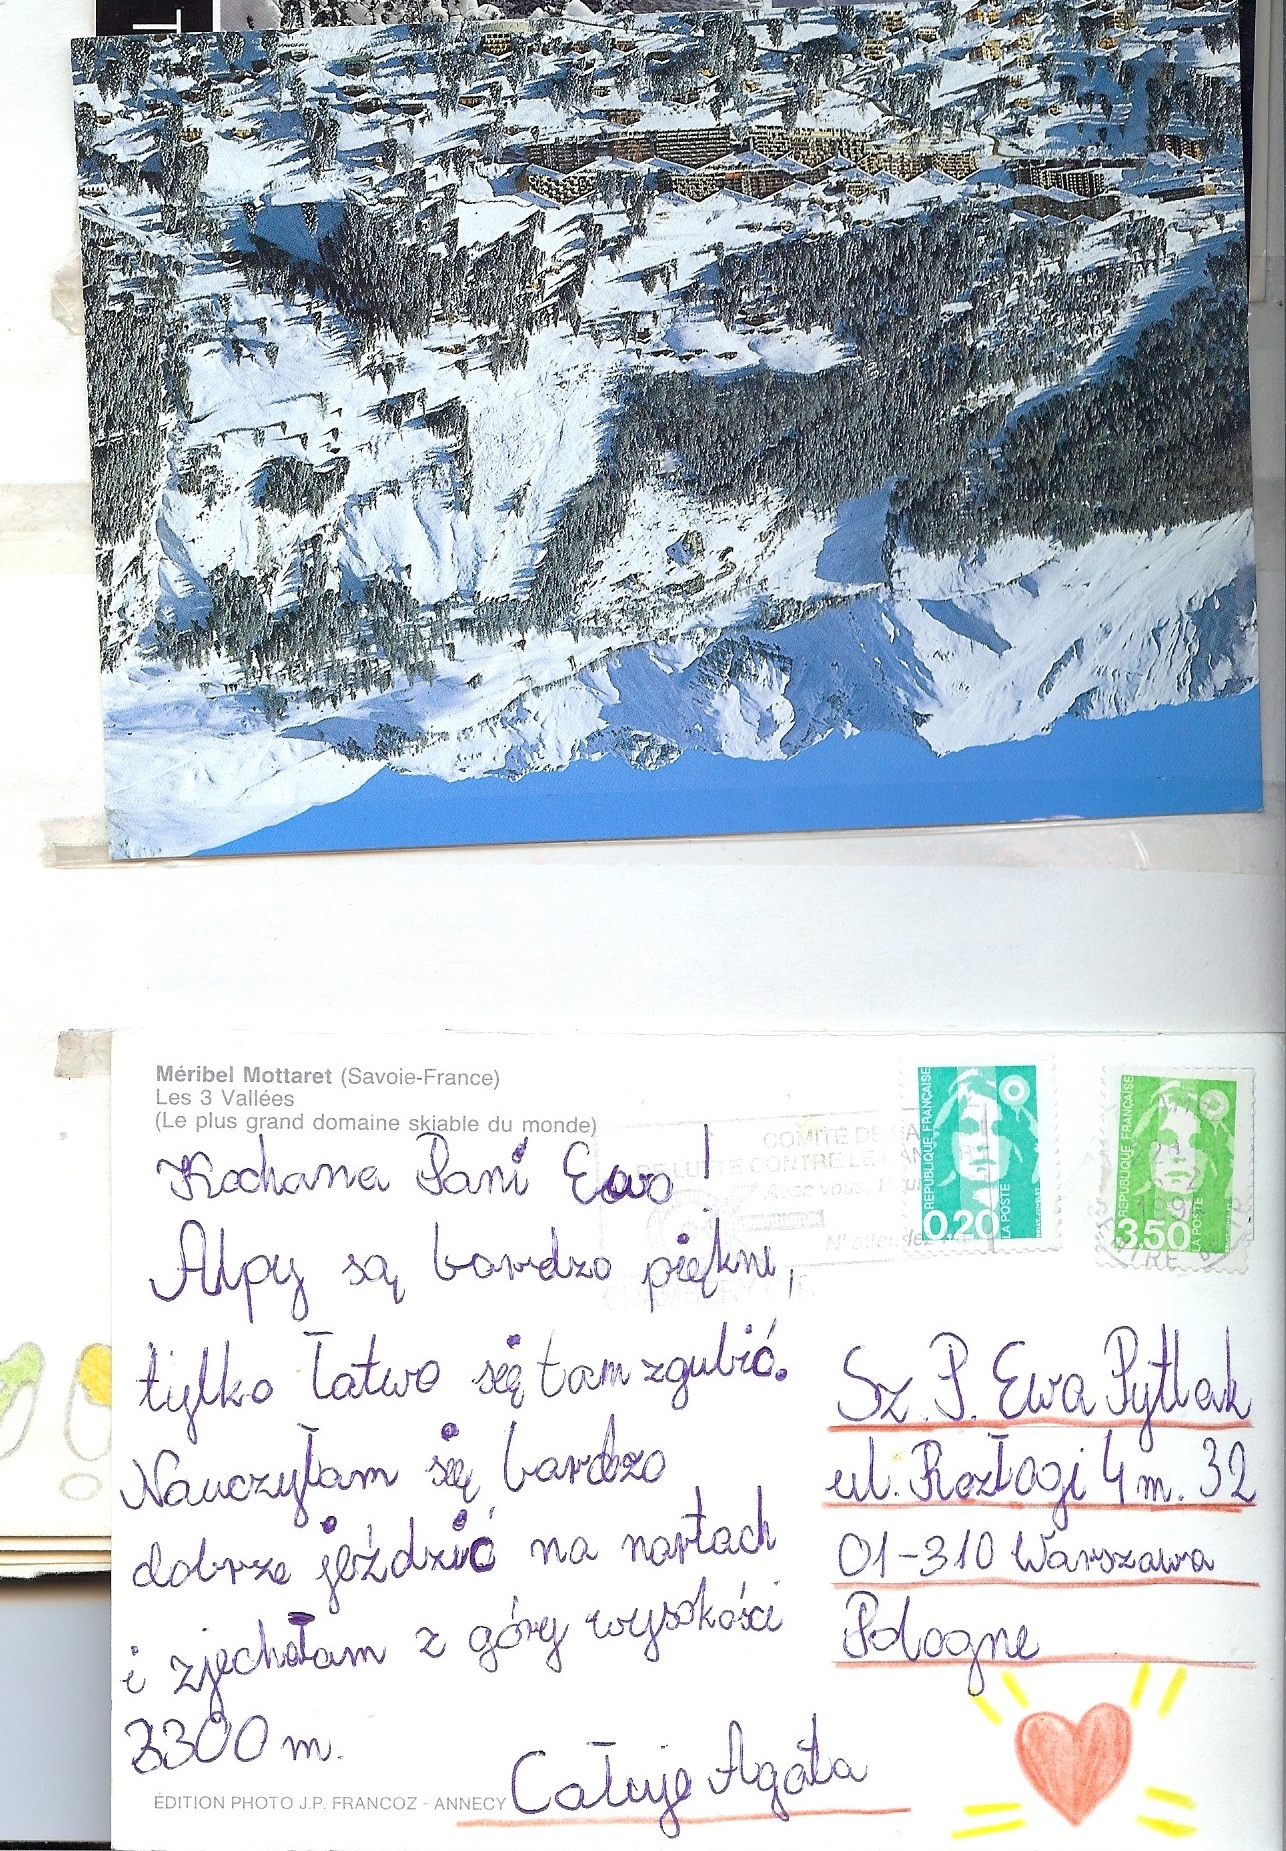 T
Méribel Mottaret (Savoie-France)
Les 3 Vallées
(Le plus grand domaine skiable du monde)
Kochana Pani Ewo!
Alpy są bardzo piękne,
tylko łatwo się tam zgubić.
Nauczyłam się bardzo
dobrze jeździć na nartach
i zjechałam z góry wysokości
3300 m.
Całuję Agata
ÉDITION PHOTO J.P. FRANCOZ - ANNECY
COMITÉ DE
DE LUTTE CONTRE LE
Avec vous,
CHAMBERY CIT
RÉPUBLIQUE FRANÇAISE
0,20
LA POSTE
RÉPUBLIQUE FRANÇAISE
3,50
LA POSTE
Sz. P. Ewa Pytlak
ul. Rozłogi 4 m. 32
01-310 Warszawa
Pologne